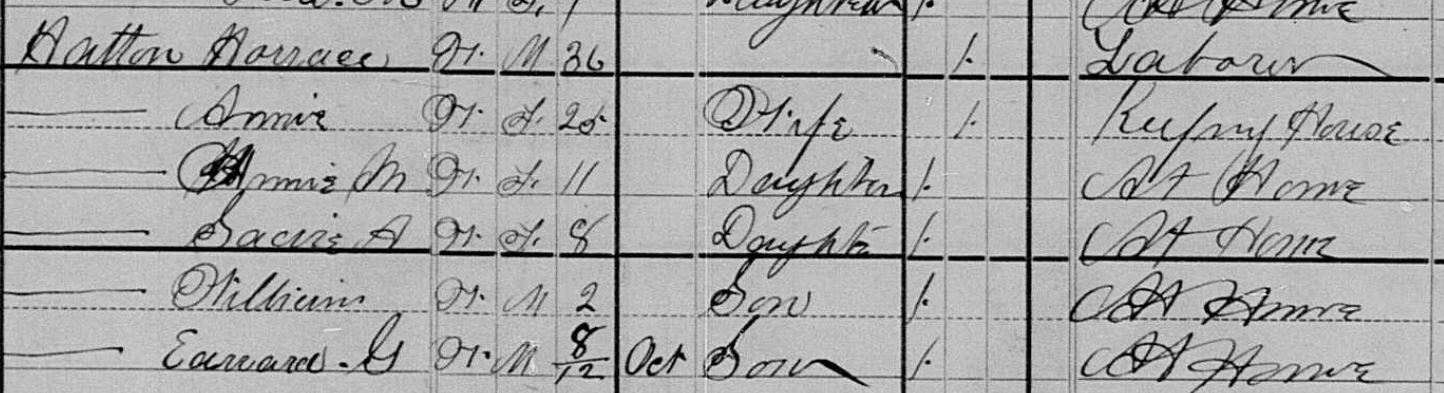 At Home
Hatton Horrace W. M 36 1. Laborer
Annie W. F. 25 Wife 1. Keepng House
Annie M W. F. 11 Daughter 1. At Home
W. F. 8 Daughte 1. At Home
William W. M 2 Son 1. At Home
Edward. G W. M 8/12 Oct Son 1. At Home